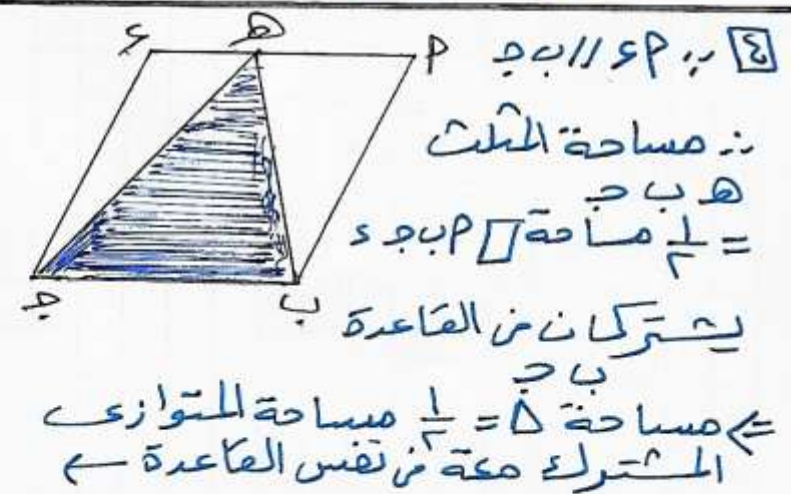 ٤ ∵ ء أ // ب ج
∴ مساحة المثلث
ه ب ج
= ١/٢ مساحة ▱ أ ب ج ء
يشتركان فى القاعدة
ب ج
⇐ مساحة Δ = ١/٢ مساحة المتوازى
المشترك معه فى نفس القاعدة ←
ء ه أ
ج ب